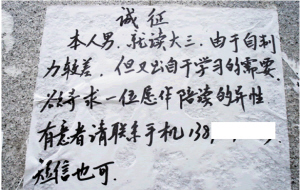 诚征
本人男.就读大三.由于自制
力较差.但又出自于学习的需要.
欲寻求一位愿作陪读的异性
有意者请联系手机138
短信也可.